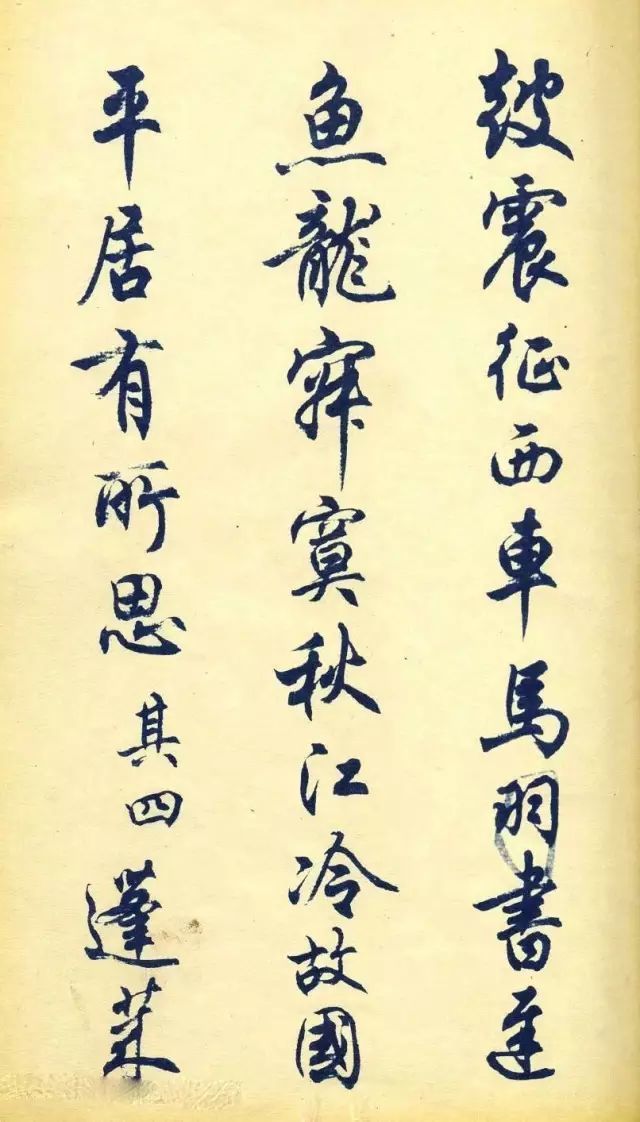 鼓震征西車馬羽書遲
魚龍寂寞秋江冷故國
平居有所思 其四 蓬萊